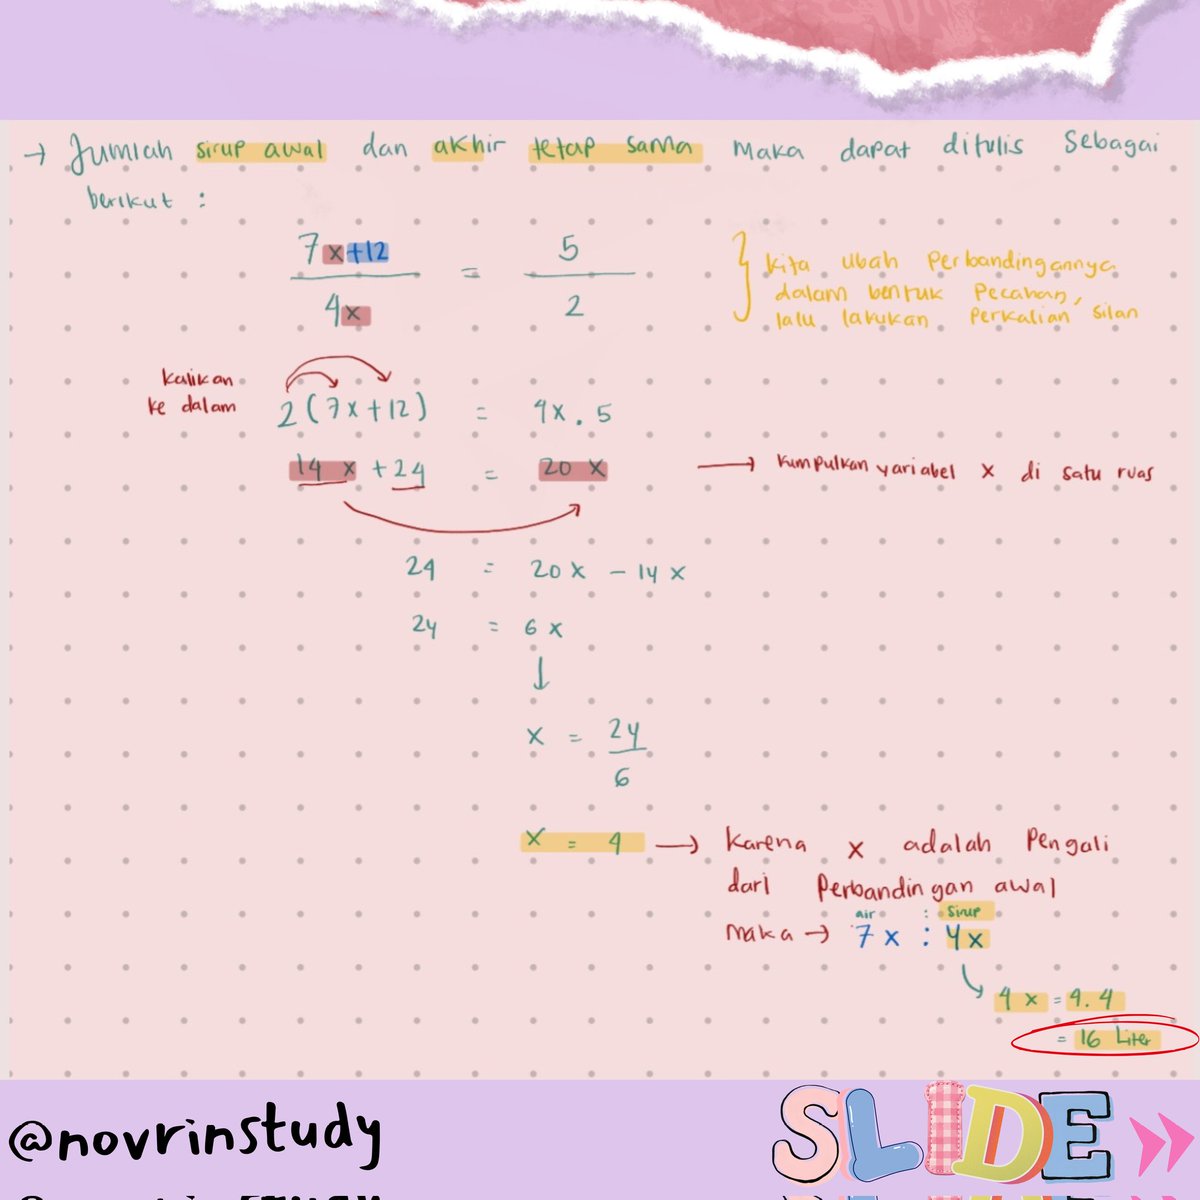 → Jumlah sirup awal dan akhir tetap sama maka dapat ditulis sebagai
berikut :
7x+12 / 4x = 5 / 2
kita ubah perbandingannya
dalam bentuk pecahan,
lalu lakukan perkalian silan
kalikan
ke dalam
2(7x+12) = 4x . 5
14x + 24 = 20x → kumpulkan variabel x di satu ruas
24 = 20x - 14x
24 = 6x
↓
x = 24 / 6
x = 4 → karena x adalah pengali
dari perbandingan awal
air : sirup
maka → 7x : 4x
4x = 4.4
= 16 Liter
@novrinstudy
SLIDE